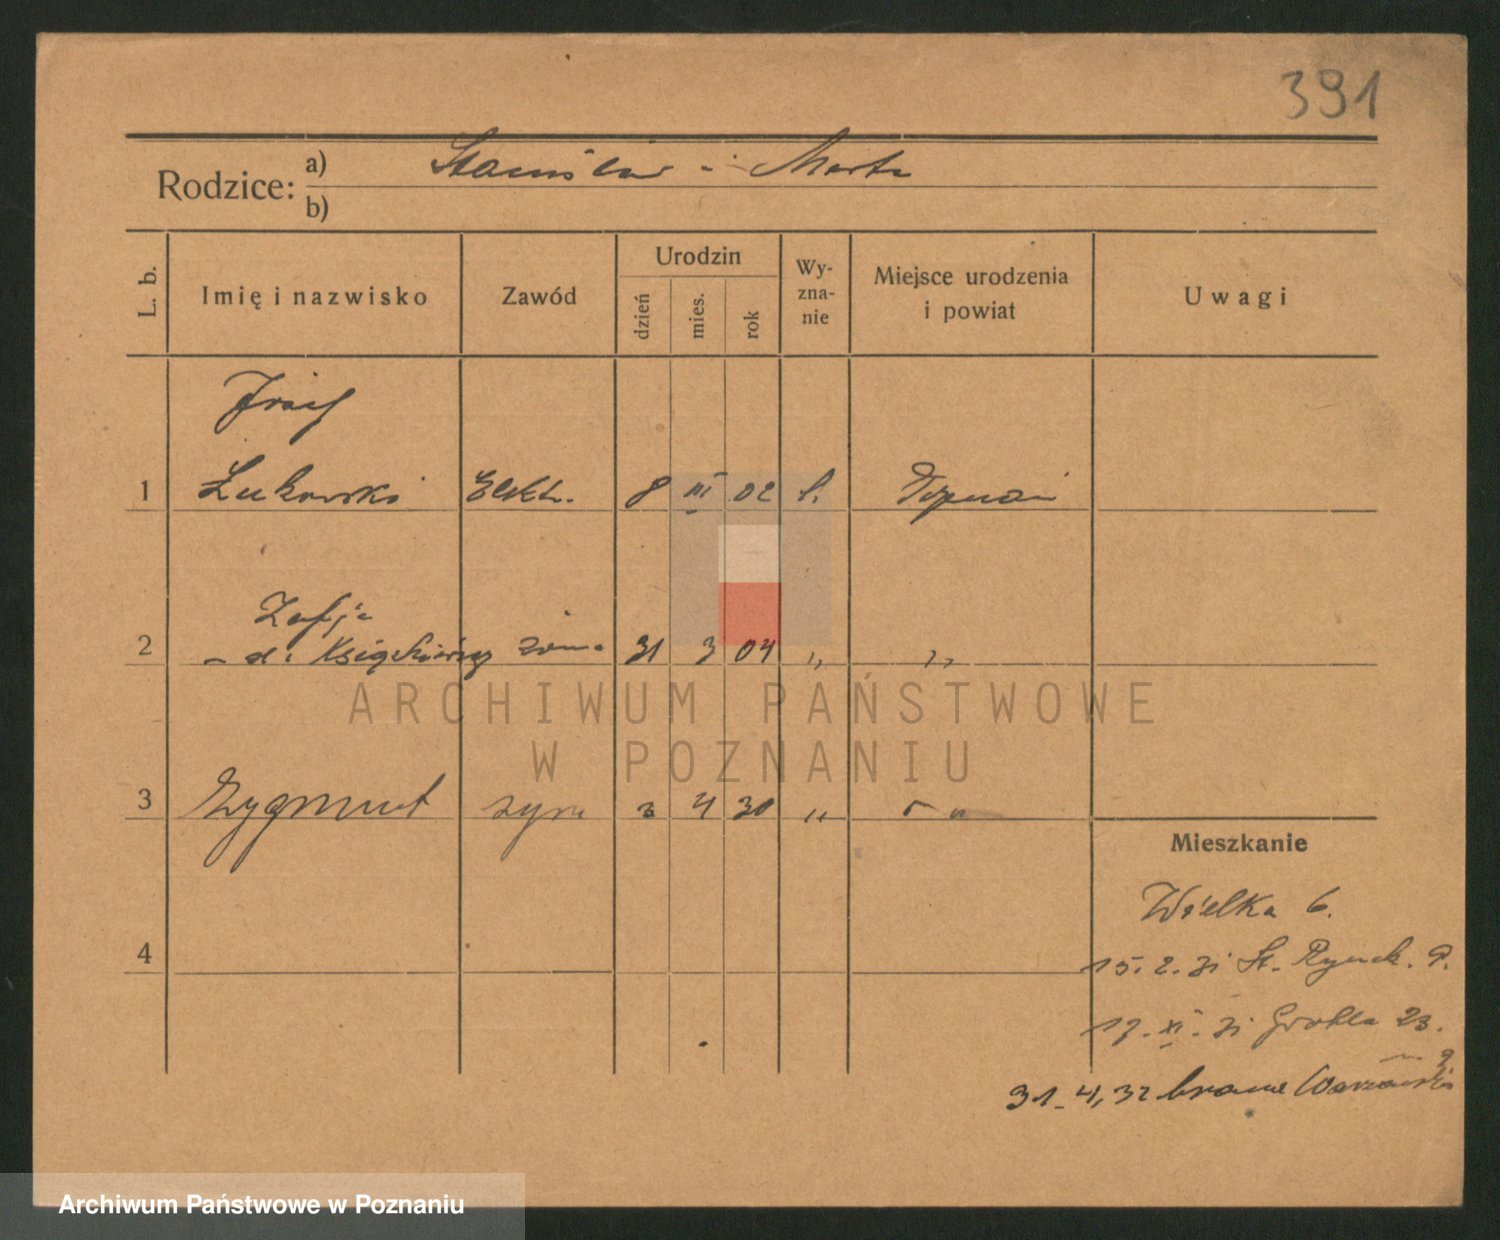 391
Rodzice: a) Stanisław i Marta
b)
L. b.
Imię i nazwisko
Zawód
Urodzin
dzień
mies.
rok
Wy-
zna-
nie
Miejsce urodzenia
i powiat
Uwagi
Józef
1 Łukowski Elekt. 8 III 02 k. Poznań
Zofja
2 - d: żona 31 3 04 ,, ,,
3 Zygmunt syn 3 4 30 ,,
Mieszkanie
4
Wielka 6.
15. 2. 31 St. Rynek. 9.
17. XI. 31 Grobla 23.
31. 4, 32 brama Warszawska
ARCHIWUM PAŃSTWOWE
W POZNANIU
Archiwum Państwowe w Poznaniu